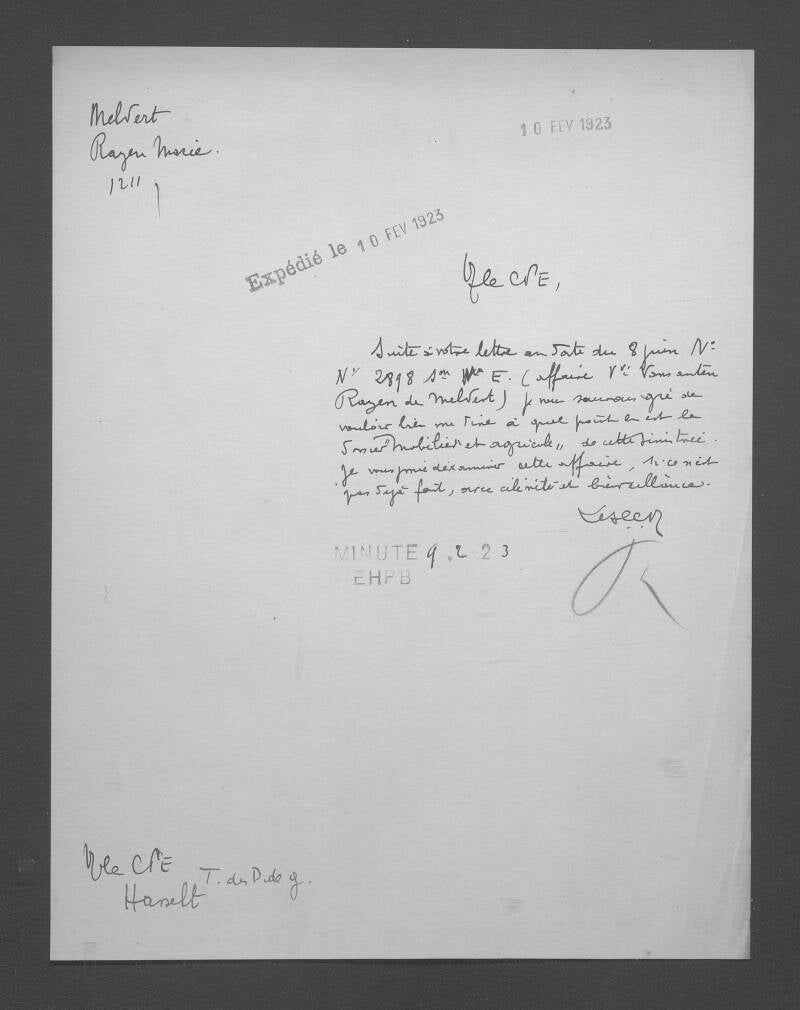 Meldert
Rayen Marie.
1211
10 FEV 1923
Expédié le 10 FEV 1923
M le CPE,
Suite à votre lettre en date du 8 juin N°
N° 2898 E. (affaire Vve Vansanten
Rayen de Meldert) je vous saurais gré de
vouloir bien me dire à quel point en est le
dossier "Mobilier et agricole„ de cette sinistrée.
Je vous prie d'examiner cette affaire, si ce n'est
pas déjà fait, avec célérité et bienveillance.
MINUTE 9.2.23
EHPB
M le CPE T. des D. de g.
Hasselt